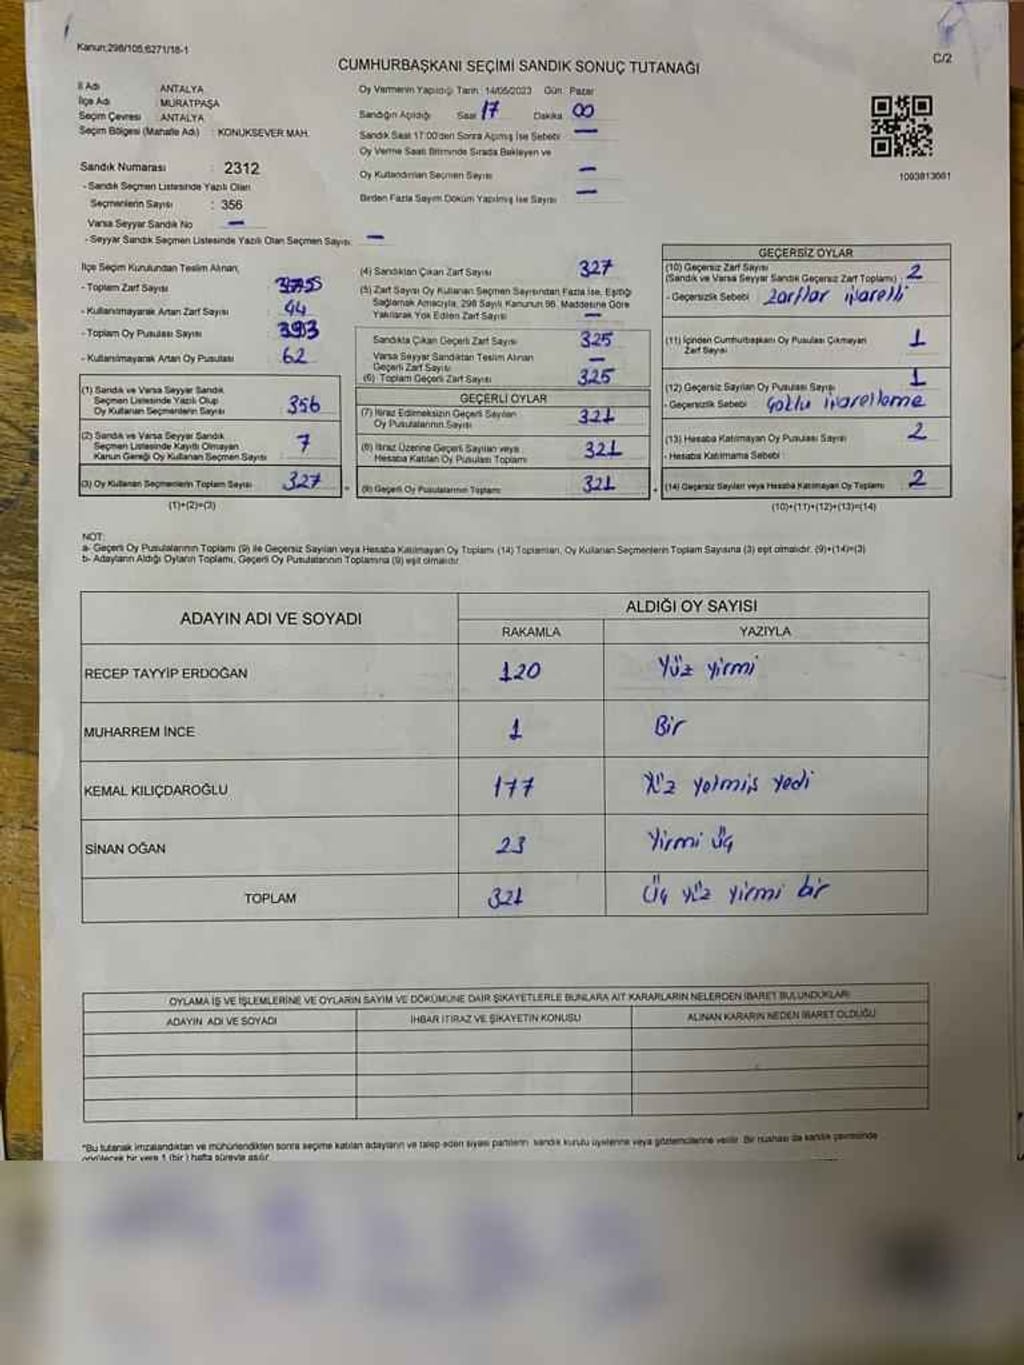 Kanun:298/105;6271/18-1
C/2
CUMHURBAŞKANI SEÇİMİ SANDIK SONUÇ TUTANAĞI
İl Adı ANTALYA
İlçe Adı : MURATPAŞA
Seçim Çevresi : ANTALYA
Seçim Bölgesi (Mahalle Adı) : KONUKSEVER MAH.
Sandık Numarası : 2312
- Sandık Seçmen Listesinde Yazılı Olan
Seçmenlerin Sayısı : 356
Varsa Seyyar Sandık No —
- Seyyar Sandık Seçmen Listesinde Yazılı Olan Seçmen Sayısı: —
Oy Vermenin Yapıldığı Tarih :14/05/2023 Gün: Pazar
Sandığın Açıldığı Saat 17 Dakika 00
Sandık Saat 17:00'den Sonra Açılmış İse Sebebi —
Oy Verme Saati Bitiminde Sırada Bekleyen ve
Oy Kullandırılan Seçmen Sayısı —
Birden Fazla Sayım Döküm Yapılmış İse Sayısı —
1093813661
İlçe Seçim Kurulundan Teslim Alınan;
- Toplam Zarf Sayısı
- Kullanılmayarak Artan Zarf Sayısı 44
- Toplam Oy Pusulası Sayısı 393
- Kullanılmayarak Artan Oy Pusulası 62
(1) Sandık ve Varsa Seyyar Sandık
Seçmen Listesinde Yazılı Olup
Oy Kullanan Seçmenlerin Sayısı 356
(2) Sandık ve Varsa Seyyar Sandık
Seçmen Listesinde Kayıtlı Olmayan
Kanun Gereği Oy Kullanan Seçmen Sayısı 7
(3) Oy Kullanan Seçmenlerin Toplam Sayısı 327
(1)+(2)=(3)
(4) Sandıktan Çıkan Zarf Sayısı 327
(5) Zarf Sayısı Oy Kullanan Seçmen Sayısından Fazla İse, Eşitliği
Sağlamak Amacıyla, 298 Sayılı Kanunun 98. Maddesine Göre
Yakılarak Yok Edilen Zarf Sayısı —
Sandıkta Çıkan Geçerli Zarf Sayısı 325
Varsa Seyyar Sandıktan Teslim Alınan
Geçerli Zarf Sayısı —
(6) Toplam Geçerli Zarf Sayısı 325
GEÇERLİ OYLAR
(7) İtiraz Edilmeksizin Geçerli Sayılan
Oy Pusulalarının Sayısı 321
(8) İtiraz Üzerine Geçerli Sayılan veya
Hesaba Katılan Oy Pusulası Toplamı 321
(9) Geçerli Oy Pusulalarının Toplamı 321
GEÇERSİZ OYLAR
(10) Geçersiz Zarf Sayısı
(Sandık ve Varsa Seyyar Sandık Geçersiz Zarf Toplamı) 2
- Geçersizlik Sebebi Zarflar işaretli
(11) İçinden Cumhurbaşkanı Oy Pusulası Çıkmayan
Zarf Sayısı 1
(12) Geçersiz Sayılan Oy Pusulası Sayısı 1
- Geçersizlik Sebebi Çoklu işaretleme
(13) Hesaba Katılmayan Oy Pusulası Sayısı 2
- Hesaba Katılmama Sebebi :
(14) Geçersiz Sayılan veya Hesaba Katılmayan Oy Toplamı 2
(10)+(11)+(12)+(13)=(14)
NOT:
a- Geçerli Oy Pusulalarının Toplamı (9) ile Geçersiz Sayılan veya Hesaba Katılmayan Oy Toplamı (14) Toplamları, Oy Kullanan Seçmenlerin Toplam Sayısına (3) eşit olmalıdır. (9)+(14)=(3)
b- Adayların Aldığı Oyların Toplamı, Geçerli Oy Pusulalarının Toplamına (9) eşit olmalıdır.
ADAYIN ADI VE SOYADI
ALDIĞI OY SAYISI
RAKAMLA YAZIYLA
RECEP TAYYİP ERDOĞAN 120 Yüz yirmi
MUHARREM İNCE 1 Bir
KEMAL KILIÇDAROĞLU 177 Yüz yetmiş yedi
SİNAN OĞAN 23 Yirmi üç
TOPLAM 321 Üç yüz yirmi bir
OYLAMA İŞ VE İŞLEMLERİNE VE OYLARIN SAYIM VE DÖKÜMÜNE DAİR ŞİKAYETLERLE BUNLARA AİT KARARLARIN NELERDEN İBARET BULUNDUKLARI
ADAYIN ADI VE SOYADI İHBAR İTİRAZ VE ŞİKAYETİN KONUSU ALINAN KARARIN NEDEN İBARET OLDUĞU
*Bu tutanak imzalandıktan ve mühürlendikten sonra seçime katılan adayların ve talep eden siyasi partilerin sandık kurulu üyelerine veya gözlemcilerine verilir. Bir nüshası da sandık çevresinde
görülecek bir yere 1 (bir) hafta süreyle asılır.